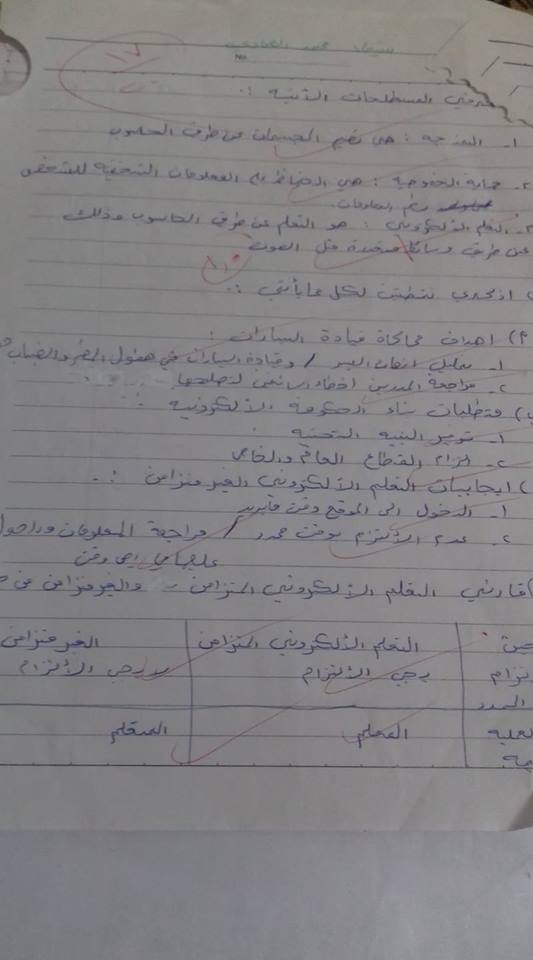 عرفي المصطلحات الآتية :
١- النمذجة : هي تصميم المجسمات عن طريق الحاسوب
٢- حماية الخصوصية : هي الحفاظ على المعلومات الشخصية للشخص
نظم المعلومات.
٣- التعلم الإلكتروني : هو التعلم عن طريق الحاسوب وذلك
عن طريق وسائط متعددة مثل الصوت
اذكري نقطتين لكل مما يأتي :
أ) اهداف محاكاة قيادة السيارات :
١- تعليل السير / وقيادة السيارات في فصول المطر والضباب
٢- مراجعة المدربين اخطاء لتصليحها
ب) متطلبات بناء الحكومة الألكترونية :
١- توفير البنيه التحتيه
٢- الزام القطاع العام والخاص
) ايجابيات التعلم الألكتروني الغير متزامن :
١- الدخول الى الموقع وقت مايريد
٢- عدم الألتزام بوقت محدد / مراجعة المعلومات
اي وقت
قارني التعلم الألكتروني المتزامن والغير متزامن من
التعلم الألكتروني المتزامن الغير متزامن
يجب الألتزام لا يجب الألتزام
المعلم المتعلم